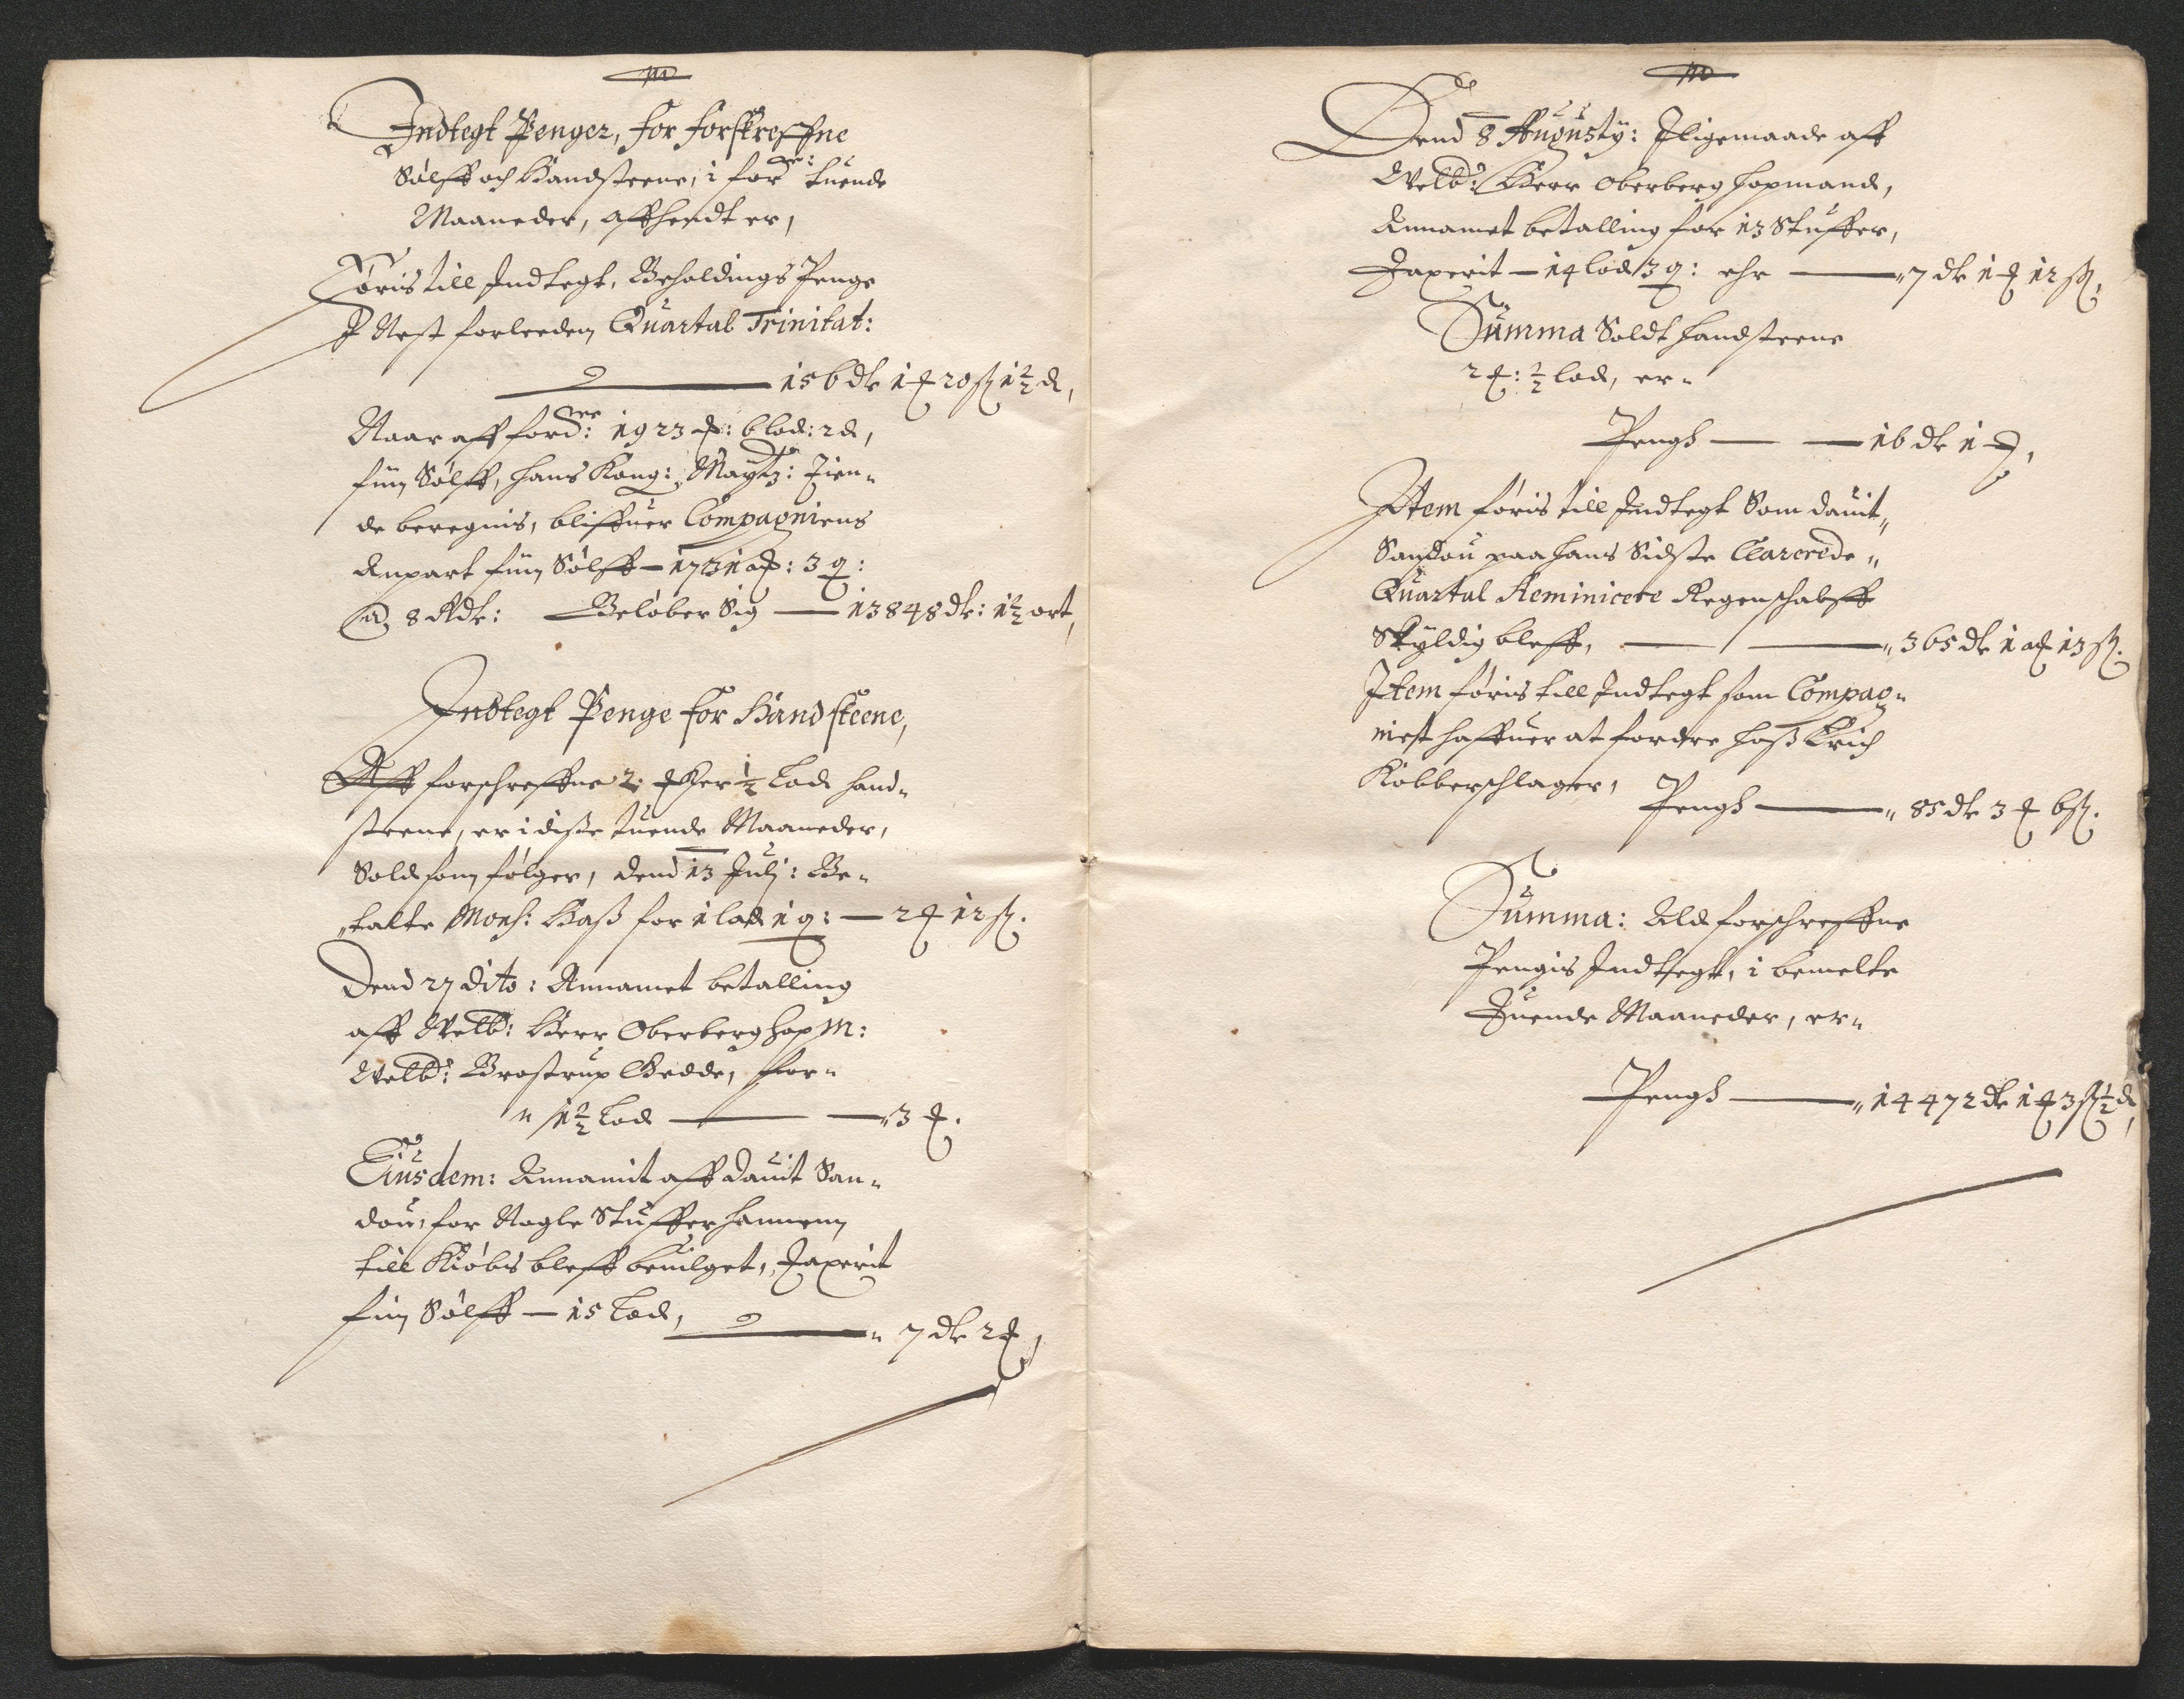 Indtegt Penger, for forskreffne
Sølff och Handsteene, i for^ne: tuende
Maaneder, affsendt er,
Føris till Indtegt, Beholdings Penge
I Nest forleeden Quartal Trinitat:
156 dr 1 ₰ 20 ß 1½ d,
Naar aff ford^ne: 1923 ₰: 6 lod: 2 d,
fiin Sølff, hans Kong: Maytz: Tien-
de beregnis, bliffuer Compagniens
Anpart fiin Sølff — 1731 ₰: 3 q:
@ 8 Rdr: Beløber Sig — 13848 dr: 1½ ort,
Indtegt Penge for Handsteene,
Aff forschreffne 2: ₰er ½ Lod hand-
steene, er i disse tuende Maaneder,
Sold som følger, dend 13 Julj: Be-
talte Mons: Hass for 1 lod 1 q: — 2 ₰ 12 ß.
Dend 27 dito: Annamet betalling
aff Welb: Herr Oberberghopm:
Welb: Brostrup Gedde, for-
" 1½ Lod — 3 ₰.
Eiusdem: Annamit aff Dauit San-
dou, for Nogle Stuffer hannem
till Kiøbs bleff beuilget, Taxerit
fiin Sølff — 15 Lod, — " 7 dr 2 ₰,
Dend 8 Augusty: Iligemaade aff
Welb: Herr Oberberghopmand,
Annamet betalling for 13 Stuffer,
Taxerit — 14 lod 3 q: ehr — " 7 dr 1 ₰ 12 ß,
Summa Soldt Handsteene
2 ₰: ½ lod, er-
Pengh — 16 dr 1 ₰,
Item føris till Indtegt Som Dauit
Sandou paa hans Sidste Clarerede
Quartal Reminicere Regenschabff
Skyldig bleff, — " 365 dr 1 ₰ 13 ß.
Item føris till Indtegt som Compag-
niest haffuer at fordre hoss Erich
Kobberschlager,
Pengh — " 85 dr 3 ₰ 6 ß.
Summa: Ald forschreffne
Pengis Indtegt, i bemelte
Tuende Maaneder, er-
Pengh — " 14472 dr 1 ₰ 3 ß ½ d,